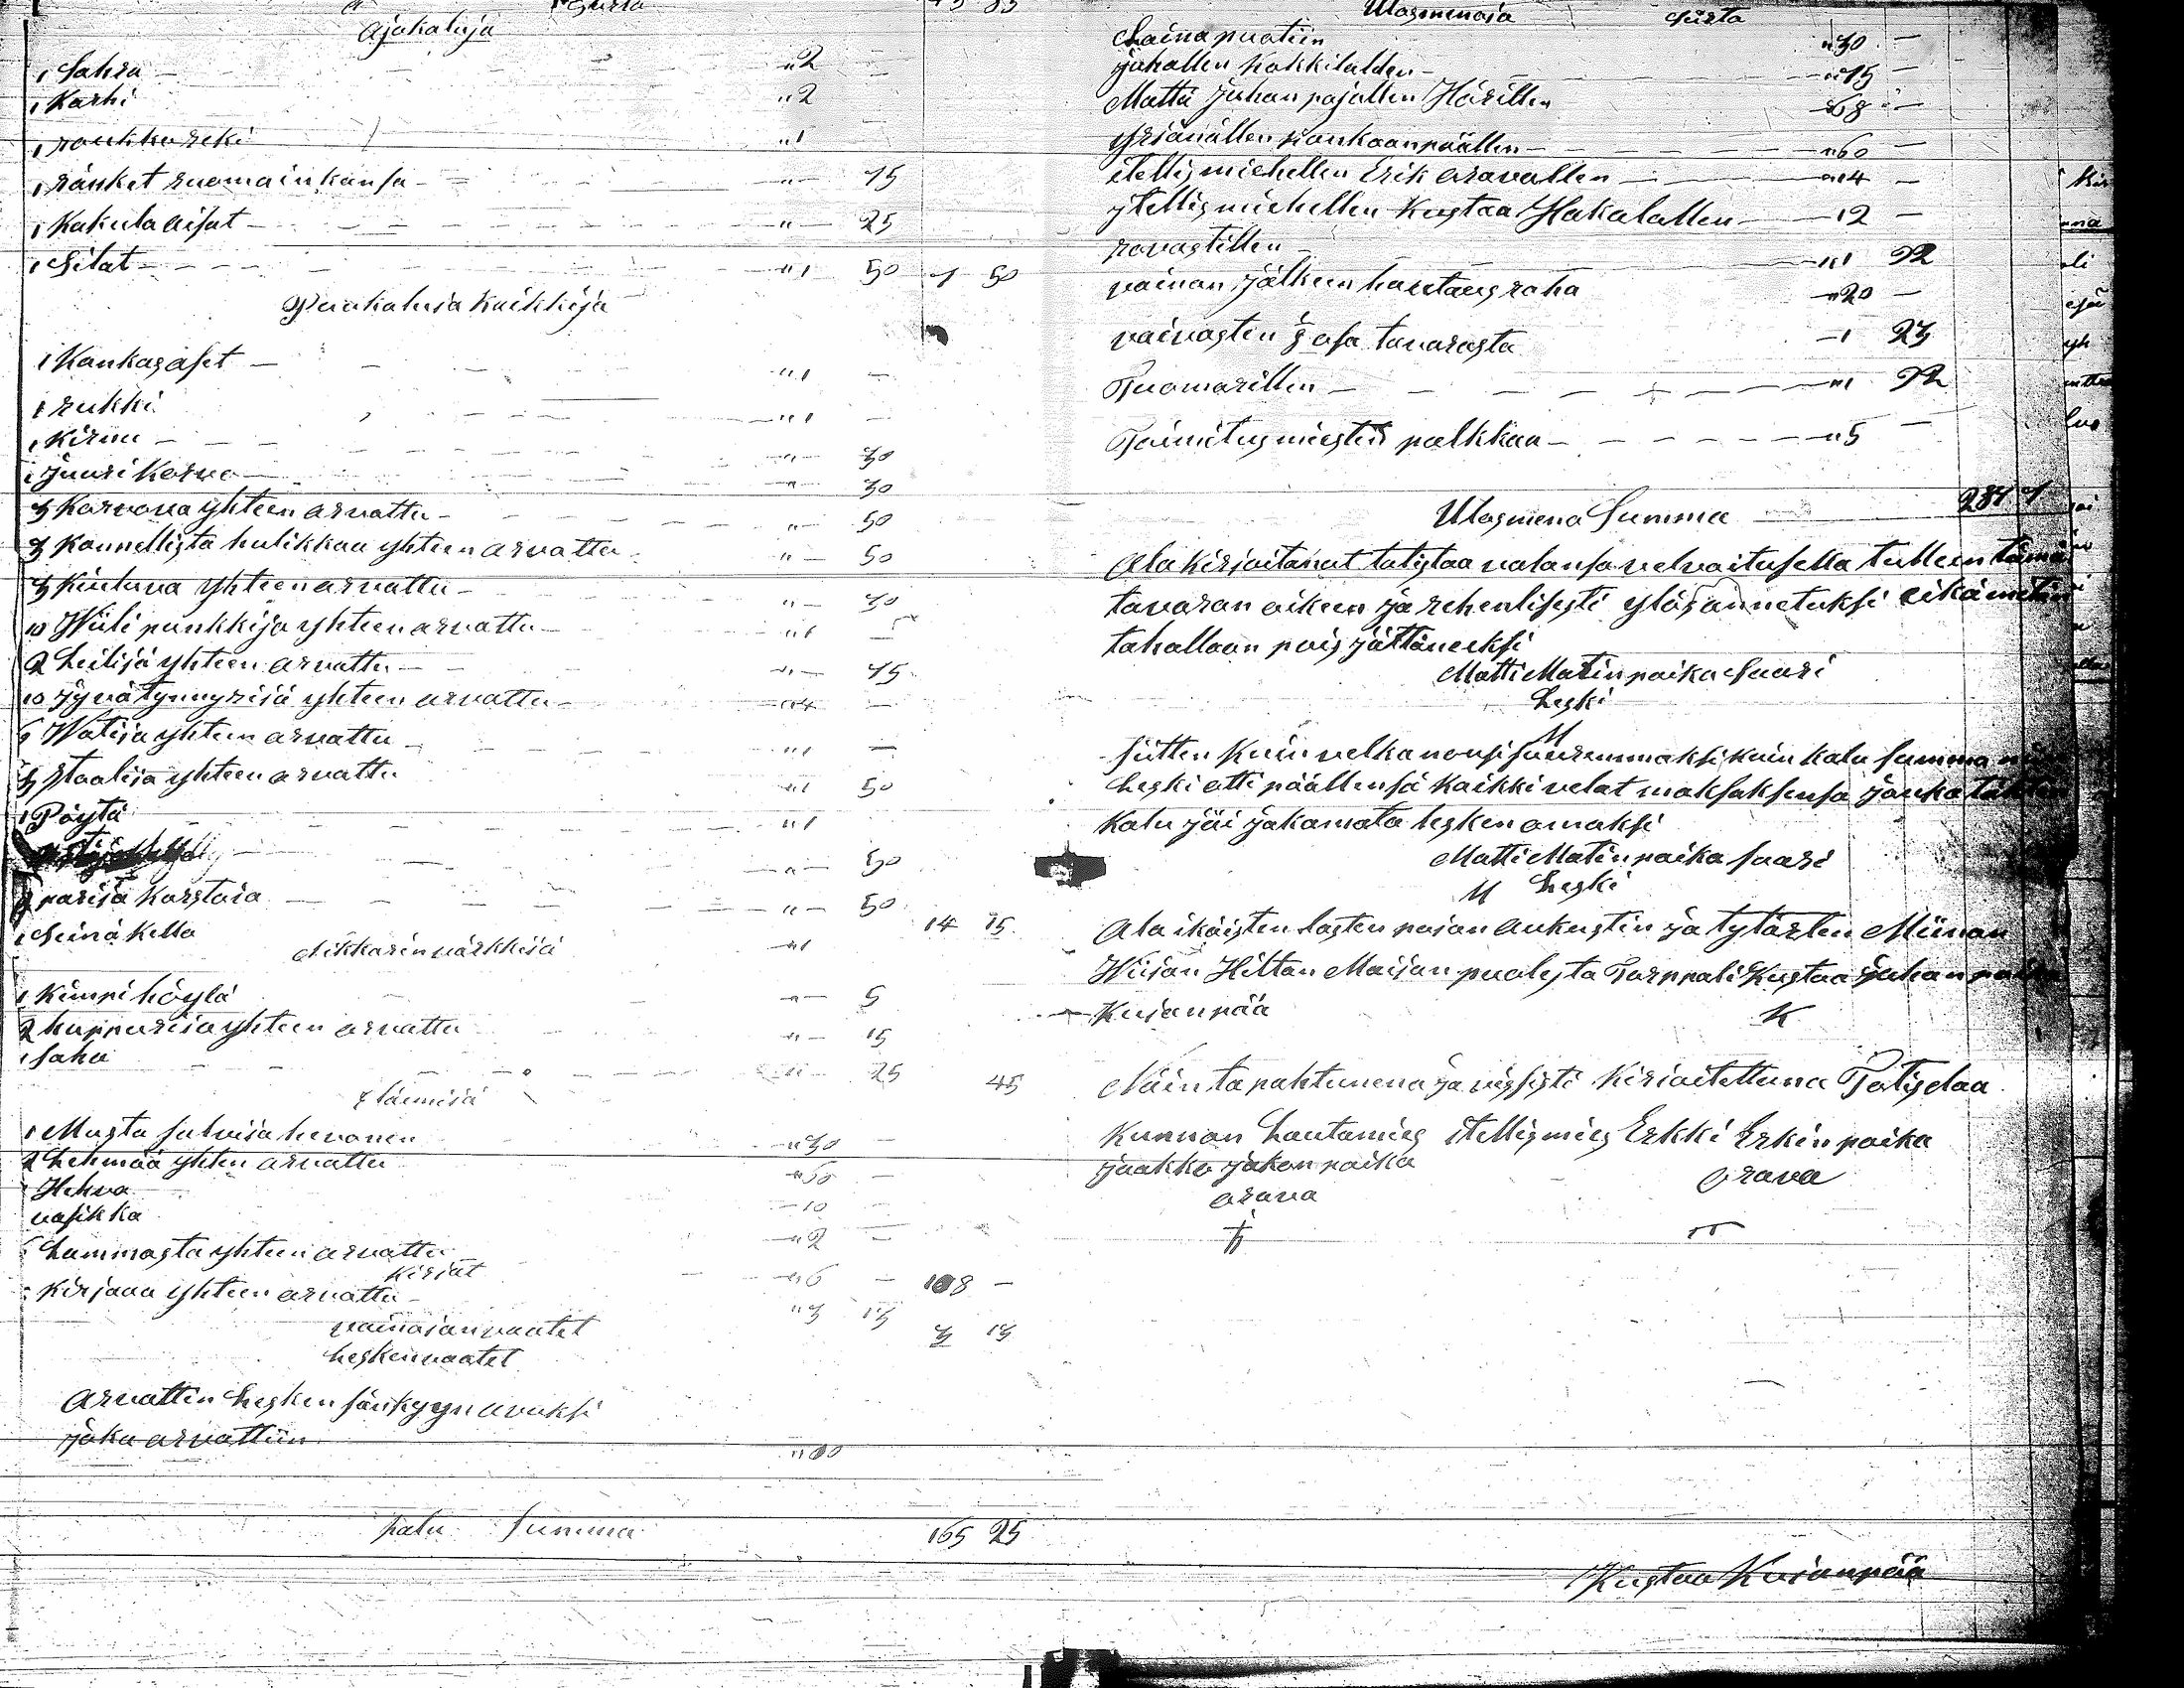 Ajokaluja
1 Sahra — "2 —
1 Karhi "2
1 roukkoreki "1
1 ränket ruomainkansa — "— 75
1 Kakulaaisat — "— 25
1 Silat — "1 50 7 50
Puukaluja kaikkija
1 Kankasaset — "1 —
1 rukki "1 —
1 Kirnu — "— 30
1 juurikorvo — "— 30
3 Korvova yhteen arvattu — "— 50
3 Kannellista kulikkaa yhteen arvattu "— 50
3 Kiuluva yhteen arvattu — "— 30
10 Wiili punkkija yhteen arvattu —
2 Leilijä yhteen arvattu — "— 75
10 Jyvätynnyrisä yhteen arvattu — "4 —
6 Watija yhteen arvattu "1 —
3 staalija yhteen arvattu "1 50
1 Pöytä "1
"— 50
parija karstoja — "— 50
1 Seinäkello "1 14 15
Nikkarinvärkkijä
1 Kimpihöylä "— 5
2 huppurija yhteen arvattu "— 15
1 saha "— 25 45
Eläimijä
1 Musta salvija hevonen "30 —
2 Lehmää yhten arvattu "60 —
Hehvo — 10
vasikka "2 —
Lammasta yhteen arvattu "6 — 108 —
Kirjat
Kirjaaa yhteen arvattu — "3 13
vainajanvaatet 3 13
leskenvaatet
Arvattin Lesken sänkyyn avuksi
joka arvattiin "10
Summa 165 25
Ulosmenoja Siirto
Laina puotiin "30 —
juhallen Kokkilalden — "15 —
Mattii Juhan pojallen Härillen 68 —
Yrjänällen Kankaanpäällen — "60 —
itellismiehellen Erik oravallen — "14 —
ytellismiehellen Kustaa Hakalallen — 12 —
rovastillen — "1 92
vainan jälkeen hautausraha "20 —
vaivasten osa tavarasta — 1 23
Tuomarillen — "1 92
Toimitusmiesten palkkaa — "5 —
Ulosmeno Summa 287 7
Ala kirjoitanut totistaa valansa velvoituksella tulleen tämän
tavaran oikeen ja rehenlisesti ylösannetuksi eikä mitän
tahallaan pois jättäneeksi
Matti Matinpoika Saari
Leski
M
Sitten kuin velka nousi suuremmaksi kuin kalu summa niin
Leski otti päällensä kaikki velat maksaksensa jonka tähten
kalu jäi jakamata lesken omaksi
Matti Matinpoika saari
M Leski
Ala ikäisten lasten pojan Aukustin ja tytärten Miinan
Wiijan Hiltan Maijan puolesta Torppali Kustaa Juhan poika
Kujanpää K
Näin tapahtunena ja vissisti kirjoitettuna Totistaa
Kunnan Lautamies itellismies Erkki Erkin poika
jaakko jakon poika Orava
orava
Kustaa Kujanpää